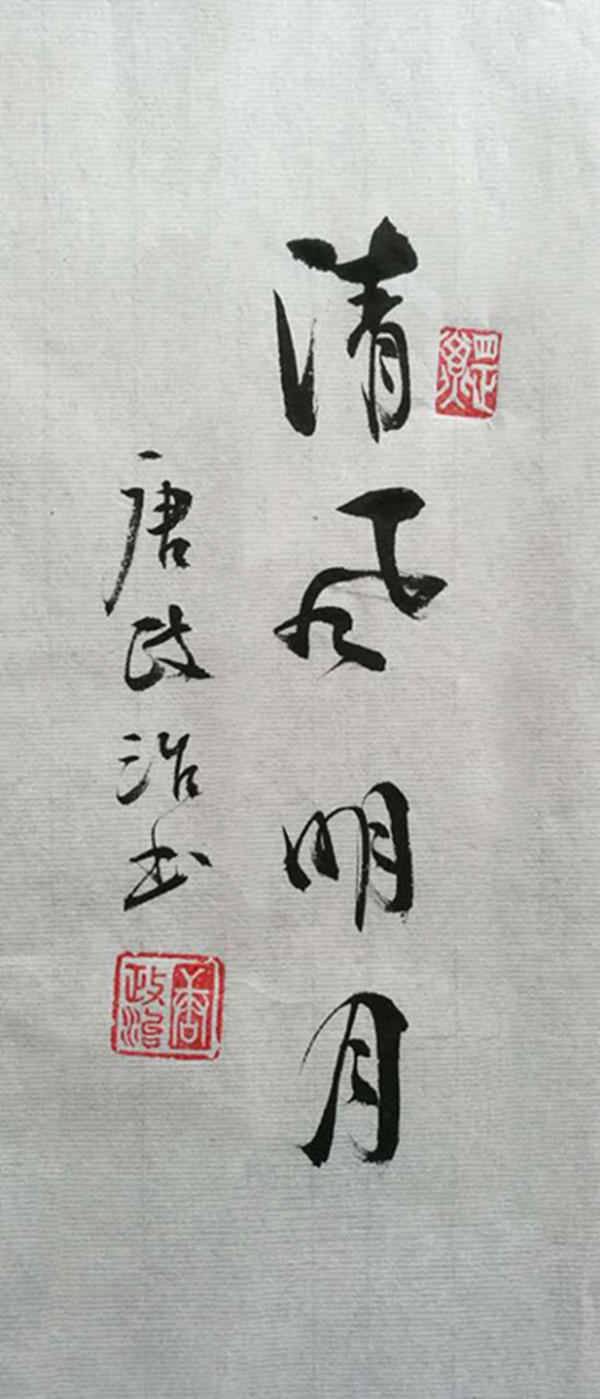 清风明月
唐政治书
唐政治